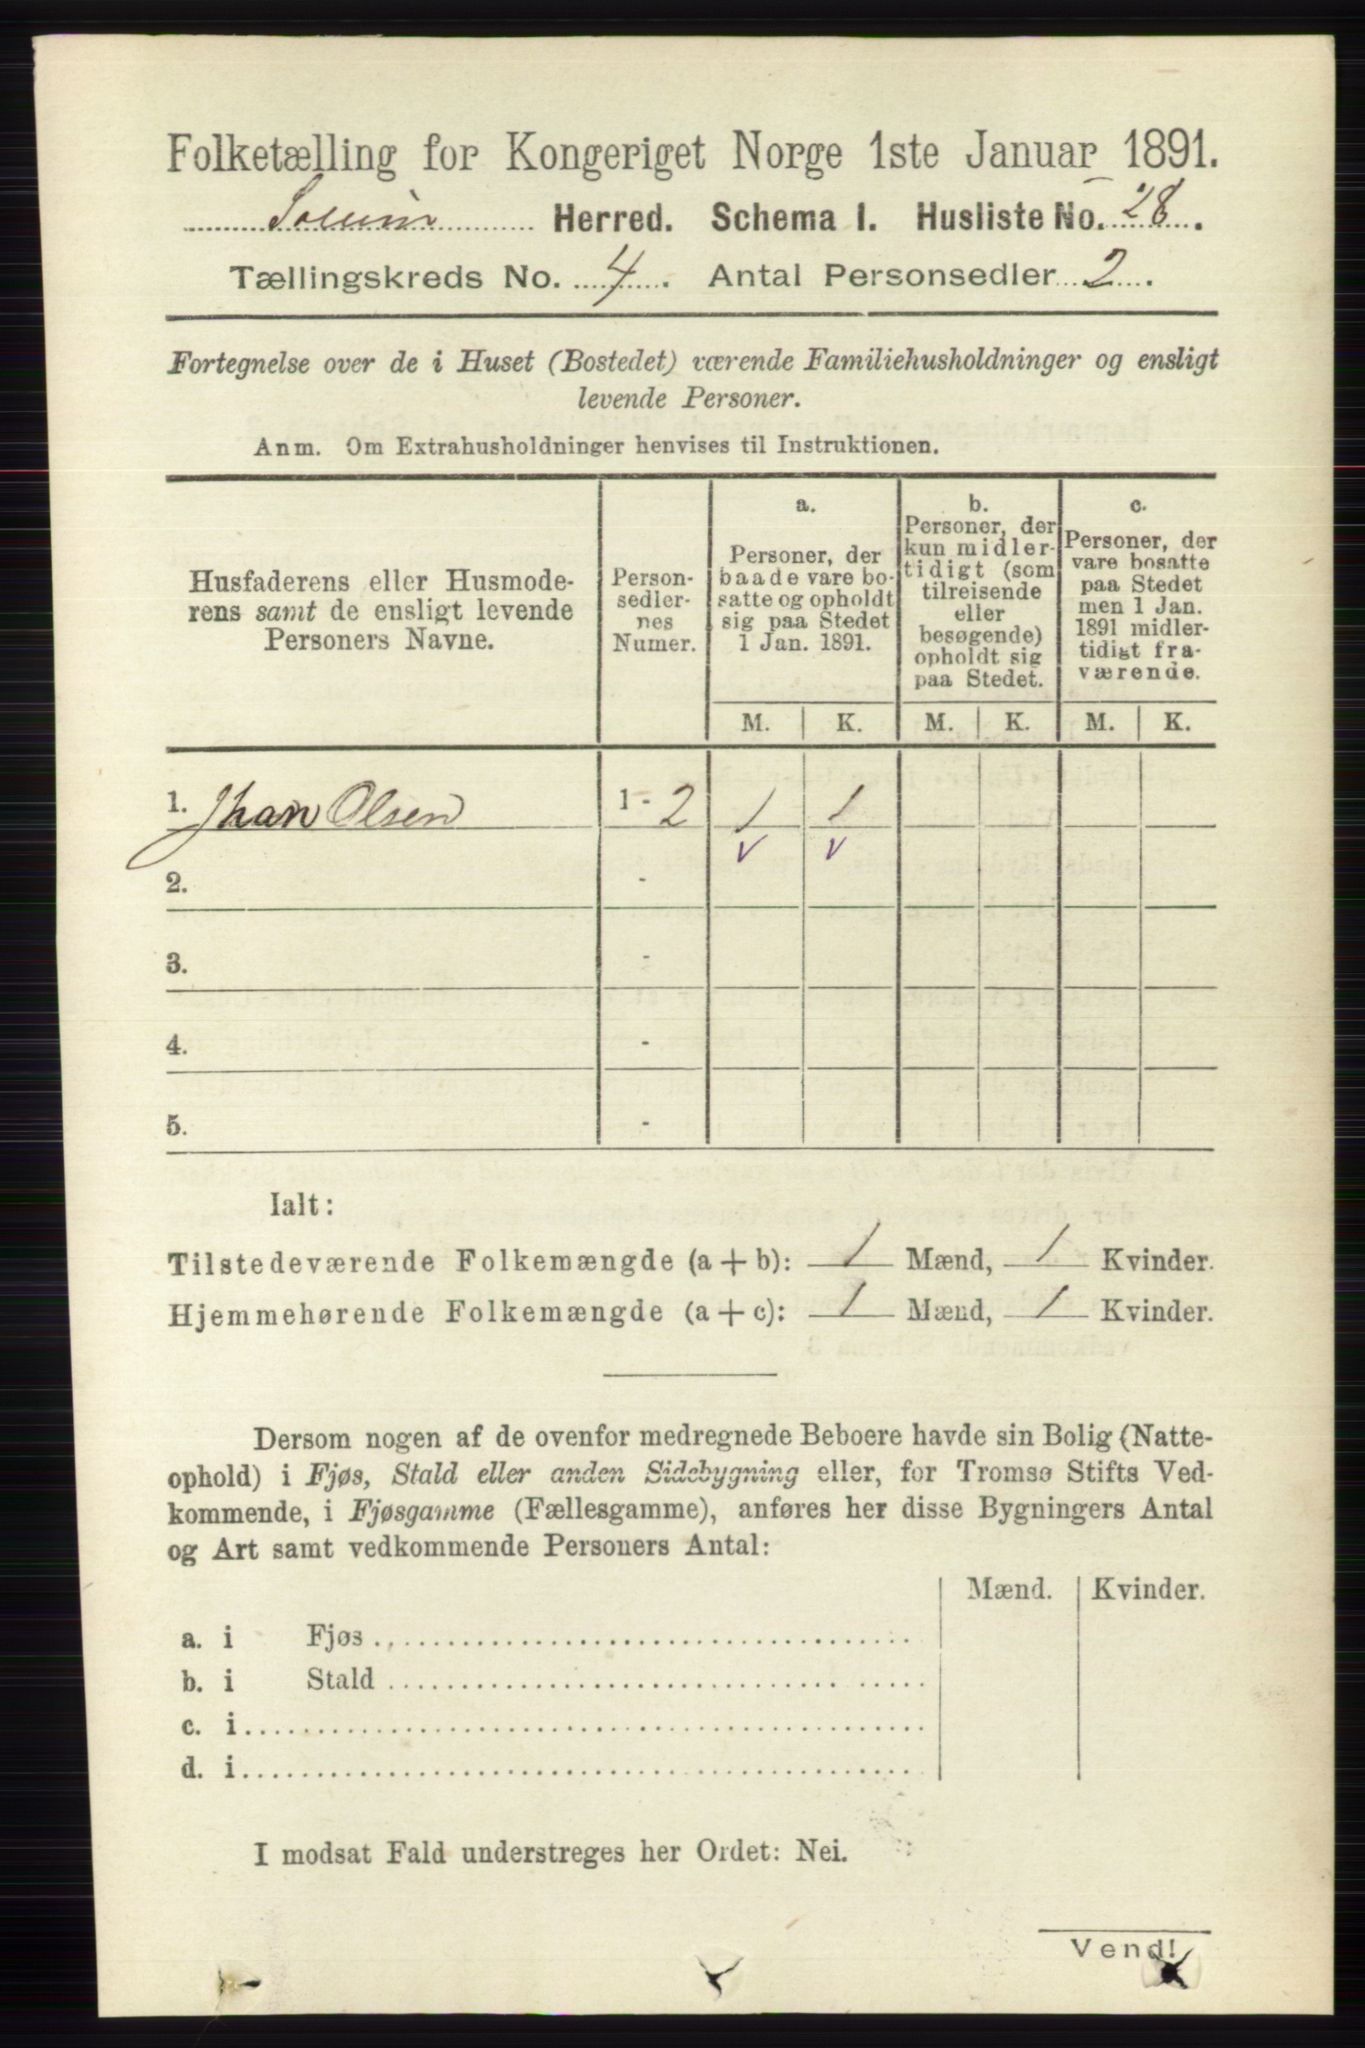 Folketælling for Kongeriget Norge 1ste Januar 1891.
Solum Herred. Schema I. Husliste No. 28.
Tællingskreds No. 4. Antal Personsedler 2.
Fortegnelse over de i Huset (Bostedet) værende Familiehusholdninger og ensligt
levende Personer.
Anm. Om Extrahusholdninger henvises til Instruktionen.
Husfaderens eller Husmode-
rens samt de ensligt levende
Personers Navne.
Person-
sedler-
nes
Numer.
a.
Personer, der
baade vare bo-
satte og opholdt
sig paa Stedet
1 Jan. 1891.
b.
Personer, der
kun midler-
tidigt (som
tilreisende
eller
besøgende)
opholdt sig
paa Stedet.
c.
Personer, der
vare bosatte
paa Stedet
men 1 Jan.
1891 midler-
tidigt fra-
værende.
M. K. M. K. M. K.
1. Jhan Olsen 1 - 2 1 1
v v
2. -
3. -
4. -
5. -
Ialt:
Tilstedeværende Folkemængde (a + b): 1 Mænd, 1 Kvinder.
Hjemmehørende Folkemængde (a + c): 1 Mænd, 1 Kvinder.
Dersom nogen af de ovenfor medregnede Beboere havde sin Bolig (Natte-
ophold) i Fjøs, Stald eller anden Sidebygning eller, for Tromsø Stifts Ved-
kommende, i Fjøsgamme (Fællesgamme), anføres her disse Bygningers Antal
og Art samt vedkommende Personers Antal:
Mænd. Kvinder.
a. i Fjøs
b. i Stald
c. i
d. i
I modsat Fald understreges her Ordet: Nei.
Vend!